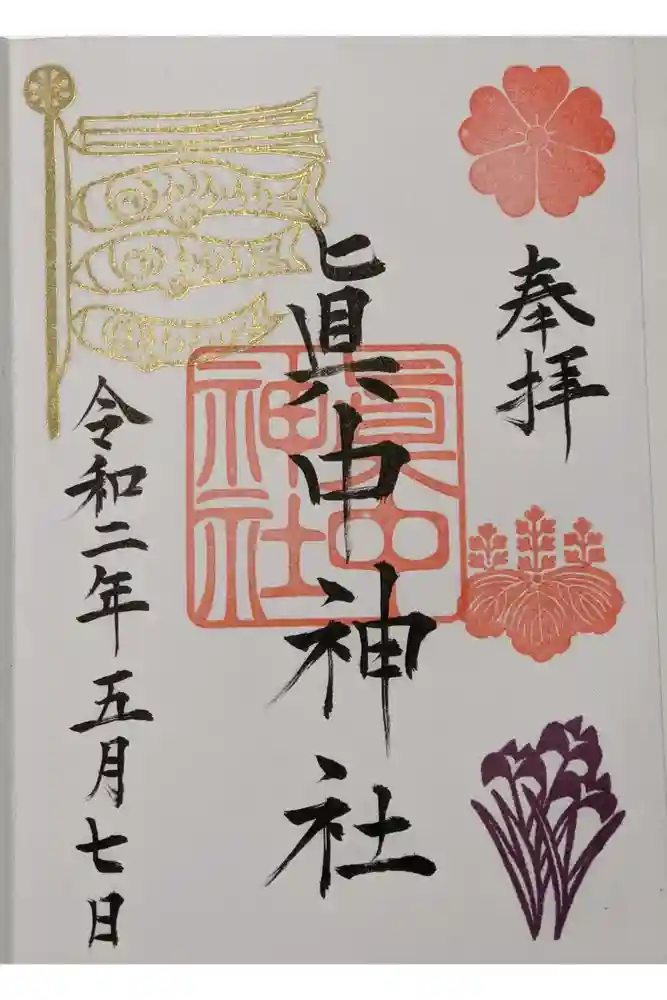 奉拝
眞中神社
令和二年五月七日
眞中
神社